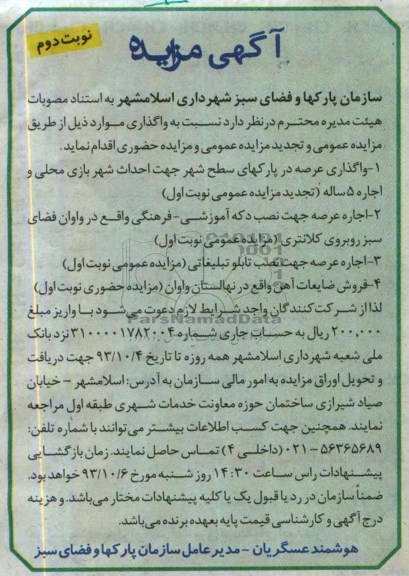 نوبت دوم
آگهی مزایده
سازمان پارکها و فضای سبز شهرداری اسلامشهر به استناد مصوبات
هیئت مدیره محترم در نظر دارد نسبت به واگذاری موارد ذیل از طریق
مزایده عمومی و تجدید مزایده عمومی و مزایده حضوری اقدام نماید.
۱-واگذاری عرصه در پارکهای سطح شهر جهت احداث شهر بازی محلی و
اجاره ۵ ساله (تجدید مزایده عمومی نوبت اول)
۲-اجاره عرصه جهت نصب دکه آموزشی-فرهنگی واقع در واوان فضای
سبز روبروی کلانتری (مزایده عمومی نوبت اول)
۳-اجاره عرصه جهت نصب تابلو تبلیغاتی (مزایده عمومی نوبت اول)
۴-فروش ضایعات آهن واقع در نهالستان واوان (مزایده حضوری نوبت اول)
لذا از شرکت کنندگان واجد شرایط لازم دعوت می شود با واریز مبلغ
۲۰۰,۰۰۰ ریال به حساب جاری شماره ۳۱۰۰۰۰۱۷۸۲۰۰۴ نزد بانک
ملی شعبه شهرداری اسلامشهر همه روزه تا تاریخ ۹۳/۱۰/۴ جهت دریافت
و تحویل اوراق مزایده به امور مالی سازمان به آدرس: اسلامشهر - خیابان
صیاد شیرازی ساختمان حوزه معاونت خدمات شهری طبقه اول مراجعه
نمایند. همچنین جهت کسب اطلاعات بیشتر می توانند با شماره تلفن:
۵۶۳۶۵۶۸۹-۰۲۱ (داخلی ۴) تماس حاصل نمایند. زمان بازگشایی
پیشنهادات راس ساعت ۱۴:۳۰ روز شنبه مورخ ۹۳/۱۰/۶ خواهد بود.
ضمناً سازمان در رد یا قبول یک یا کلیه پیشنهادات مختار می باشد. و هزینه
درج آگهی و کارشناسی قیمت پایه بعهده برنده می باشد.
هوشمند عسگریان - مدیر عامل سازمان پارکها و فضای سبز
ParsNamadData